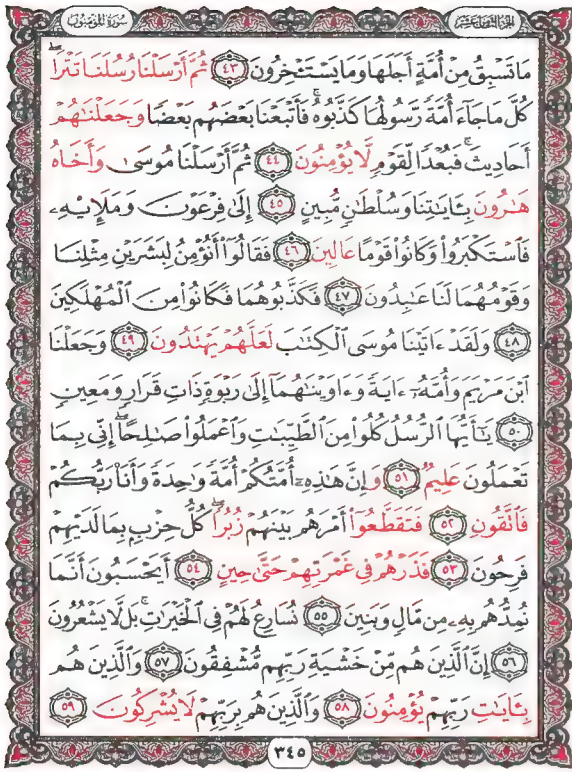 الجزء الثامن عشر
سورة المؤمنون
مَا تَسْبِقُ مِنْ أُمَّةٍ أَجَلَهَا وَمَا يَسْتَـْٔخِرُونَ ٤٣ ثُمَّ أَرْسَلْنَا رُسُلَنَا تَتْرَا
كُلَّ مَا جَآءَ أُمَّةً رَّسُولُهَا كَذَّبُوهُ ۚ فَأَتْبَعْنَا بَعْضَهُم بَعْضًا وَجَعَلْنَـٰهُمْ
أَحَادِيثَ ۚ فَبُعْدًا لِّقَوْمٍ لَّا يُؤْمِنُونَ ٤٤ ثُمَّ أَرْسَلْنَا مُوسَىٰ وَأَخَاهُ
هَـٰرُونَ بِـَٔايَـٰتِنَا وَسُلْطَـٰنٍ مُّبِينٍ ٤٥ إِلَىٰ فِرْعَوْنَ وَمَلَإِي۟هِۦ
فَٱسْتَكْبَرُوا۟ وَكَانُوا۟ قَوْمًا عَالِينَ ٤٦ فَقَالُوٓا۟ أَنُؤْمِنُ لِبَشَرَيْنِ مِثْلِنَا
وَقَوْمُهُمَا لَنَا عَـٰبِدُونَ ٤٧ فَكَذَّبُوهُمَا فَكَانُوا۟ مِنَ ٱلْمُهْلَكِينَ
٤٨ وَلَقَدْ ءَاتَيْنَا مُوسَى ٱلْكِتَـٰبَ لَعَلَّهُمْ يَهْتَدُونَ ٤٩ وَجَعَلْنَا
ٱبْنَ مَرْيَمَ وَأُمَّهُۥٓ ءَايَةً وَءَاوَيْنَـٰهُمَآ إِلَىٰ رَبْوَةٍ ذَاتِ قَرَارٍ وَمَعِينٍ
٥٠ يَـٰٓأَيُّهَا ٱلرُّسُلُ كُلُوا۟ مِنَ ٱلطَّيِّبَـٰتِ وَٱعْمَلُوا۟ صَـٰلِحًا ۖ إِنِّى بِمَا
تَعْمَلُونَ عَلِيمٌ ٥١ وَإِنَّ هَـٰذِهِۦٓ أُمَّتُكُمْ أُمَّةً وَٰحِدَةً وَأَنَا۠ رَبُّكُمْ
فَٱتَّقُونِ ٥٢ فَتَقَطَّعُوٓا۟ أَمْرَهُم بَيْنَهُمْ زُبُرًا ۖ كُلُّ حِزْبٍۭ بِمَا لَدَيْهِمْ
فَرِحُونَ ٥٣ فَذَرْهُمْ فِى غَمْرَتِهِمْ حَتَّىٰ حِينٍ ٥٤ أَيَحْسَبُونَ أَنَّمَا
نُمِدُّهُم بِهِۦ مِن مَّالٍ وَبَنِينَ ٥٥ نُسَارِعُ لَهُمْ فِى ٱلْخَيْرَٰتِ ۚ بَل لَّا يَشْعُرُونَ
٥٦ إِنَّ ٱلَّذِينَ هُم مِّنْ خَشْيَةِ رَبِّهِم مُّشْفِقُونَ ٥٧ وَٱلَّذِينَ هُم
بِـَٔايَـٰتِ رَبِّهِمْ يُؤْمِنُونَ ٥٨ وَٱلَّذِينَ هُم بِرَبِّهِمْ لَا يُشْرِكُونَ ٥٩
٣٤٥